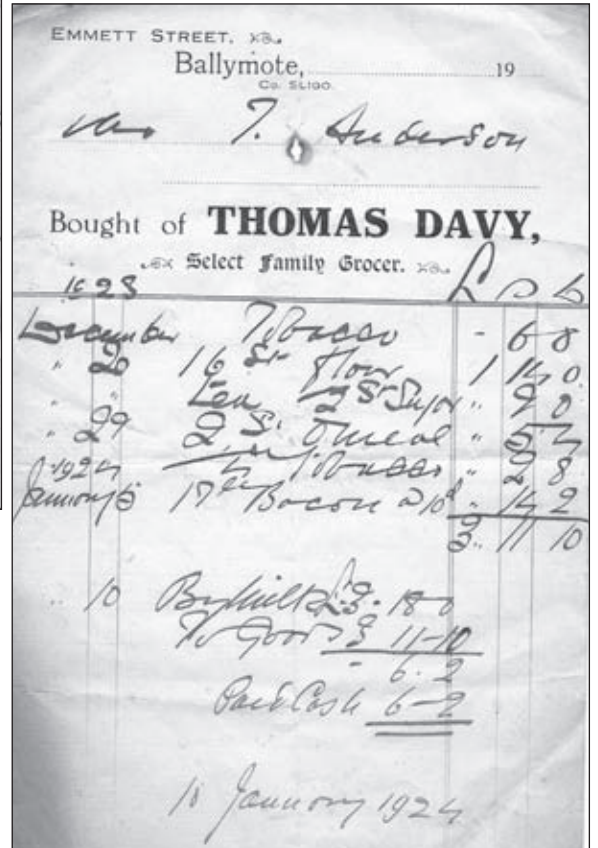 EMMETT STREET,
Ballymote, 19
Co. SLIGO.
T. Anderson
Bought of THOMAS DAVY,
Select Family Grocer.
1923 £ s d
December Tobacco - 6 8
" 20 16 St Flour 1 14 0
" " Tea 2 St Sugar " 9 0
" 29 2 St Omeal " 5 4
1924 Tobacco " 2 8
January 5 17 lb Bacon @ 10d " 14 2
3 " 11 10
" 10 By Milk £3 - 18 - 0
To Goods 3 11 - 10
- 6 - 2
Paid Cash 6 - 2
10 January 1924